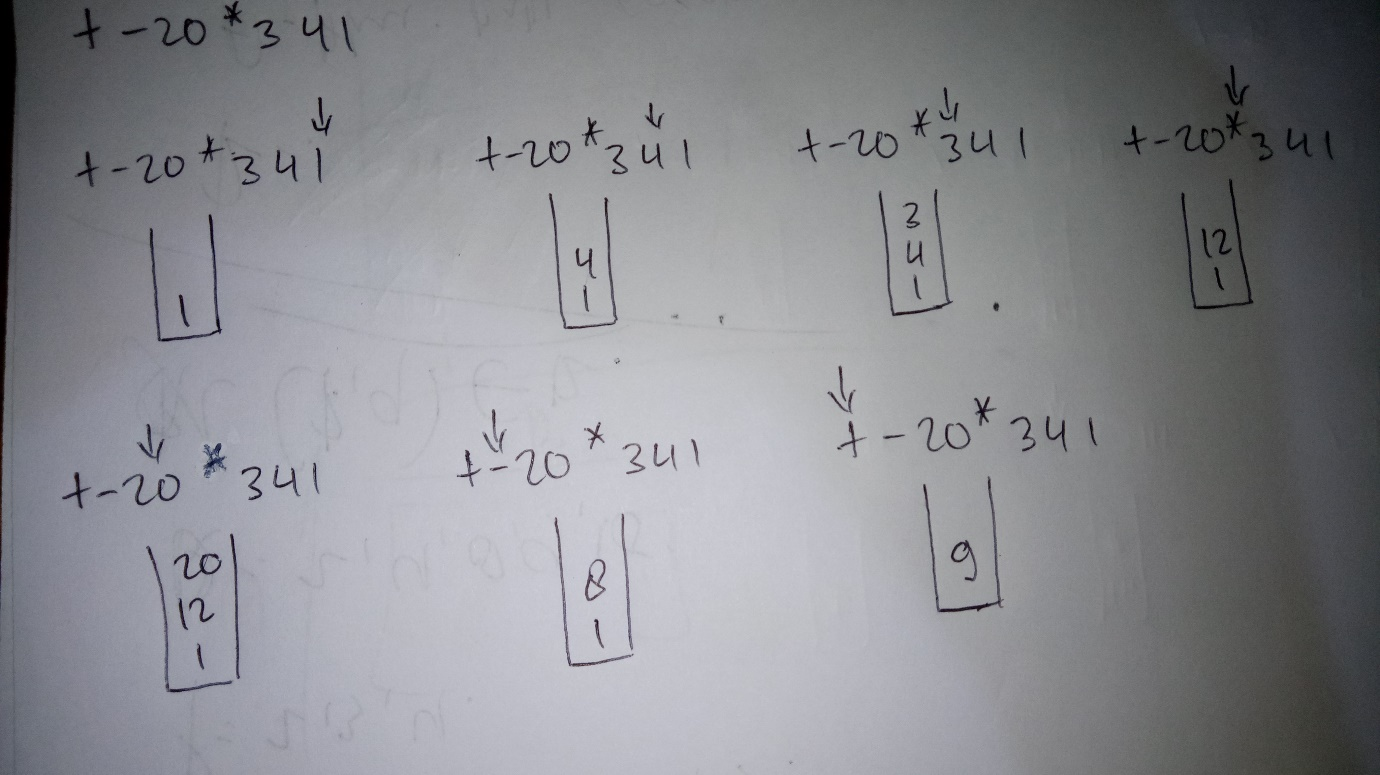 + - 20 * 3 4 1
+ - 20 * 3 4 1
1
+ - 20 * 3 4 1
4
1
+ - 20 * 3 4 1
3
4
1
+ - 20 * 3 4 1
12
1
+ - 20 * 3 4 1
20
12
1
+ - 20 * 3 4 1
8
1
+ - 20 * 3 4 1
9